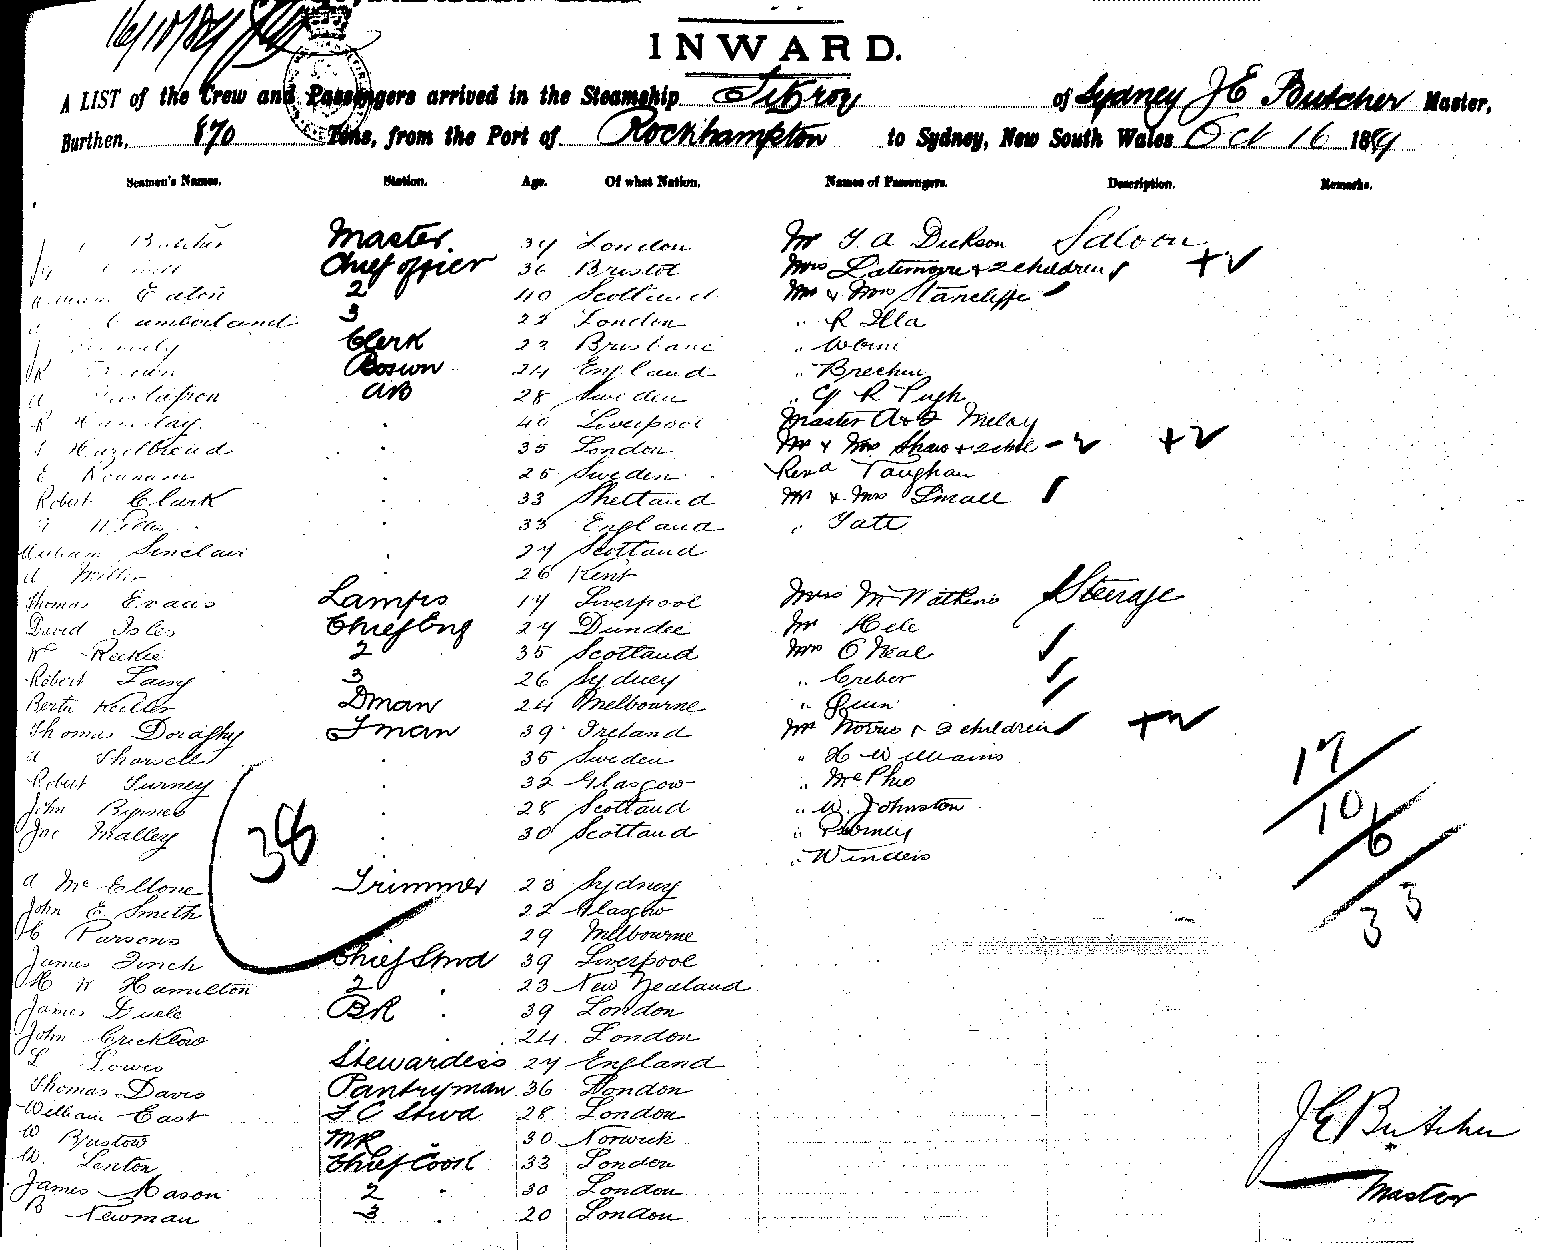 16/10/84
INWARD.
A LIST of the Crew and Passengers arrived in the Steamship Fitzroy of Sydney J E Butcher Master,
Burthen, 870 Tons, from the Port of Rockhampton to Sydney, New South Wales Oct 16 1884
Seamen's Names. Station. Age. Of what Nation. Names of Passengers. Description. Remarks.
Butcher Master. 34 London Mr J. A Dickson Saloon
Chief officer 36 Bristol Mrs Latimore + 2 children +
Eaton 2 40 Scotland Mr & Mrs Stancliffe
Cumberland 3 22 London " R Illa
Clerk 23 Brisbane "
Bosun 24 England " Brechin
AB 28 Sweden " R Pugh
R 40 Liverpool Master A & J
Hazelbread . 35 London Mr & Mrs Shaw + 2 chil - 2 + 2
E . 25 Sweden Revd Vaughan
Robert Clark . 33 Shetland Mr & Mrs Small
33 England " Tate
William Sinclair . 27 Scotland
A Miller . 26 Kent
Thomas Evans Lamps 19 Liverpool Mrs McWatkins Steerage
David Isles Chief Eng 27 Dundee Mr Hele
W Reekie 2 35 Scotland Mrs O Neal
Robert Laing 3 26 Sydney " Creber
Bertu Keiller Dman 24 Melbourne " Quin
Thomas Doraghy Fman 39 Ireland Mr Norris + 2 children +
A . 35 Sweden " H Williams
Robert Turney . 32 Glasgow " McPhie
John Bymes . 28 Scotland " W. Johnston
Jac Malley . 30 Scotland "
" Winders
38
17
10
6
33
A Mc Ellone Trimmer 23 Sydney
John E Smith 22 Glasgow
H Parsons 29 Melbourne
James Finch Chief Stwd 39 Liverpool
H W Hamilton 2 . 23 New Zealand
James Duele BR . 39 London
John Cricklow 24 London
L Lowes Stewardess 27 England
Thomas Davis Pantryman 36 London
William East F C Stwd 28 London
W Bristow MR 30 Norwich
W. Lenton Chief Cook 33 London
James Mason 2 . 30 London
B Newman 3 . 20 London
J E Butcher
Master